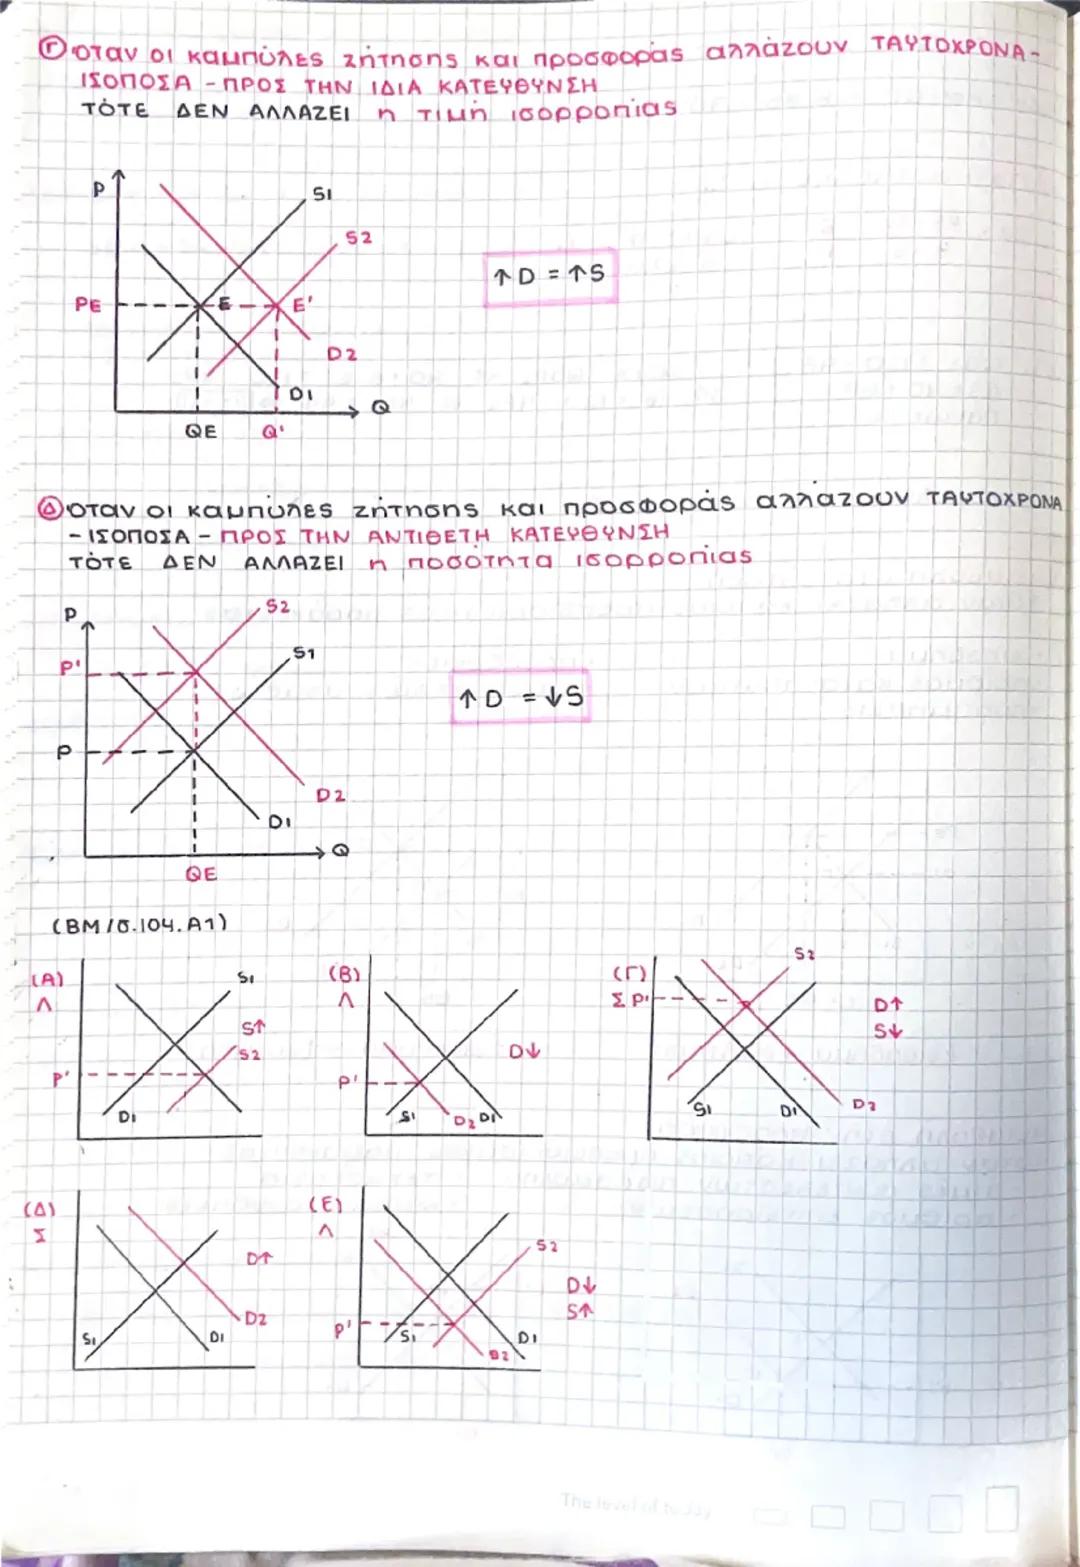 Γ όταν οι καμπύλες ζήτησης και προσφοράς αλλάζουν ΤΑΥΤΟΧΡΟΝΑ-
ΙΣΟΠΟΣΑ - ΠΡΟΣ ΤΗΝ ΙΔΙΑ ΚΑΤΕΥΘΥΝΣΗ
ΤΌΤΕ ΔΕΝ ΑΛΛΑΖΕΙ η τιμή ισορροπίας
P
S1
S2
↑D = ↑S
PE
E
E'
D2
D1
Q
QE Q'
Δ όταν οι καμπύλες ζήτησης και προσφοράς αλλάζουν ΤΑΥΤΟΧΡΟΝΑ
- ΙΣΟΠΟΣΑ - ΠΡΟΣ ΤΗΝ ΑΝΤΙΘΕΤΗ ΚΑΤΕΥΘΥΝΣΗ
ΤΌΤΕ ΔΕΝ ΑΛΛΑΖΕΙ η ποσότητα ισορροπίας
P
S2
S1
P'
↑D = ↓S
P
D2
D1
Q
QE
(ΒΜ/σ.104.Α1)
(Α)
Λ
S1
S↑
S2
P'
D1
(Β)
Λ
D↓
P'
S1
D2 D1
(Γ)
Σ P'
S2
D↑
S↓
S1
D1
D2
(Δ)
Σ
D↑
D2
S1
D1
(Ε)
Λ
S2
D↓
S↑
P'
S1
D1
D2
The level of today